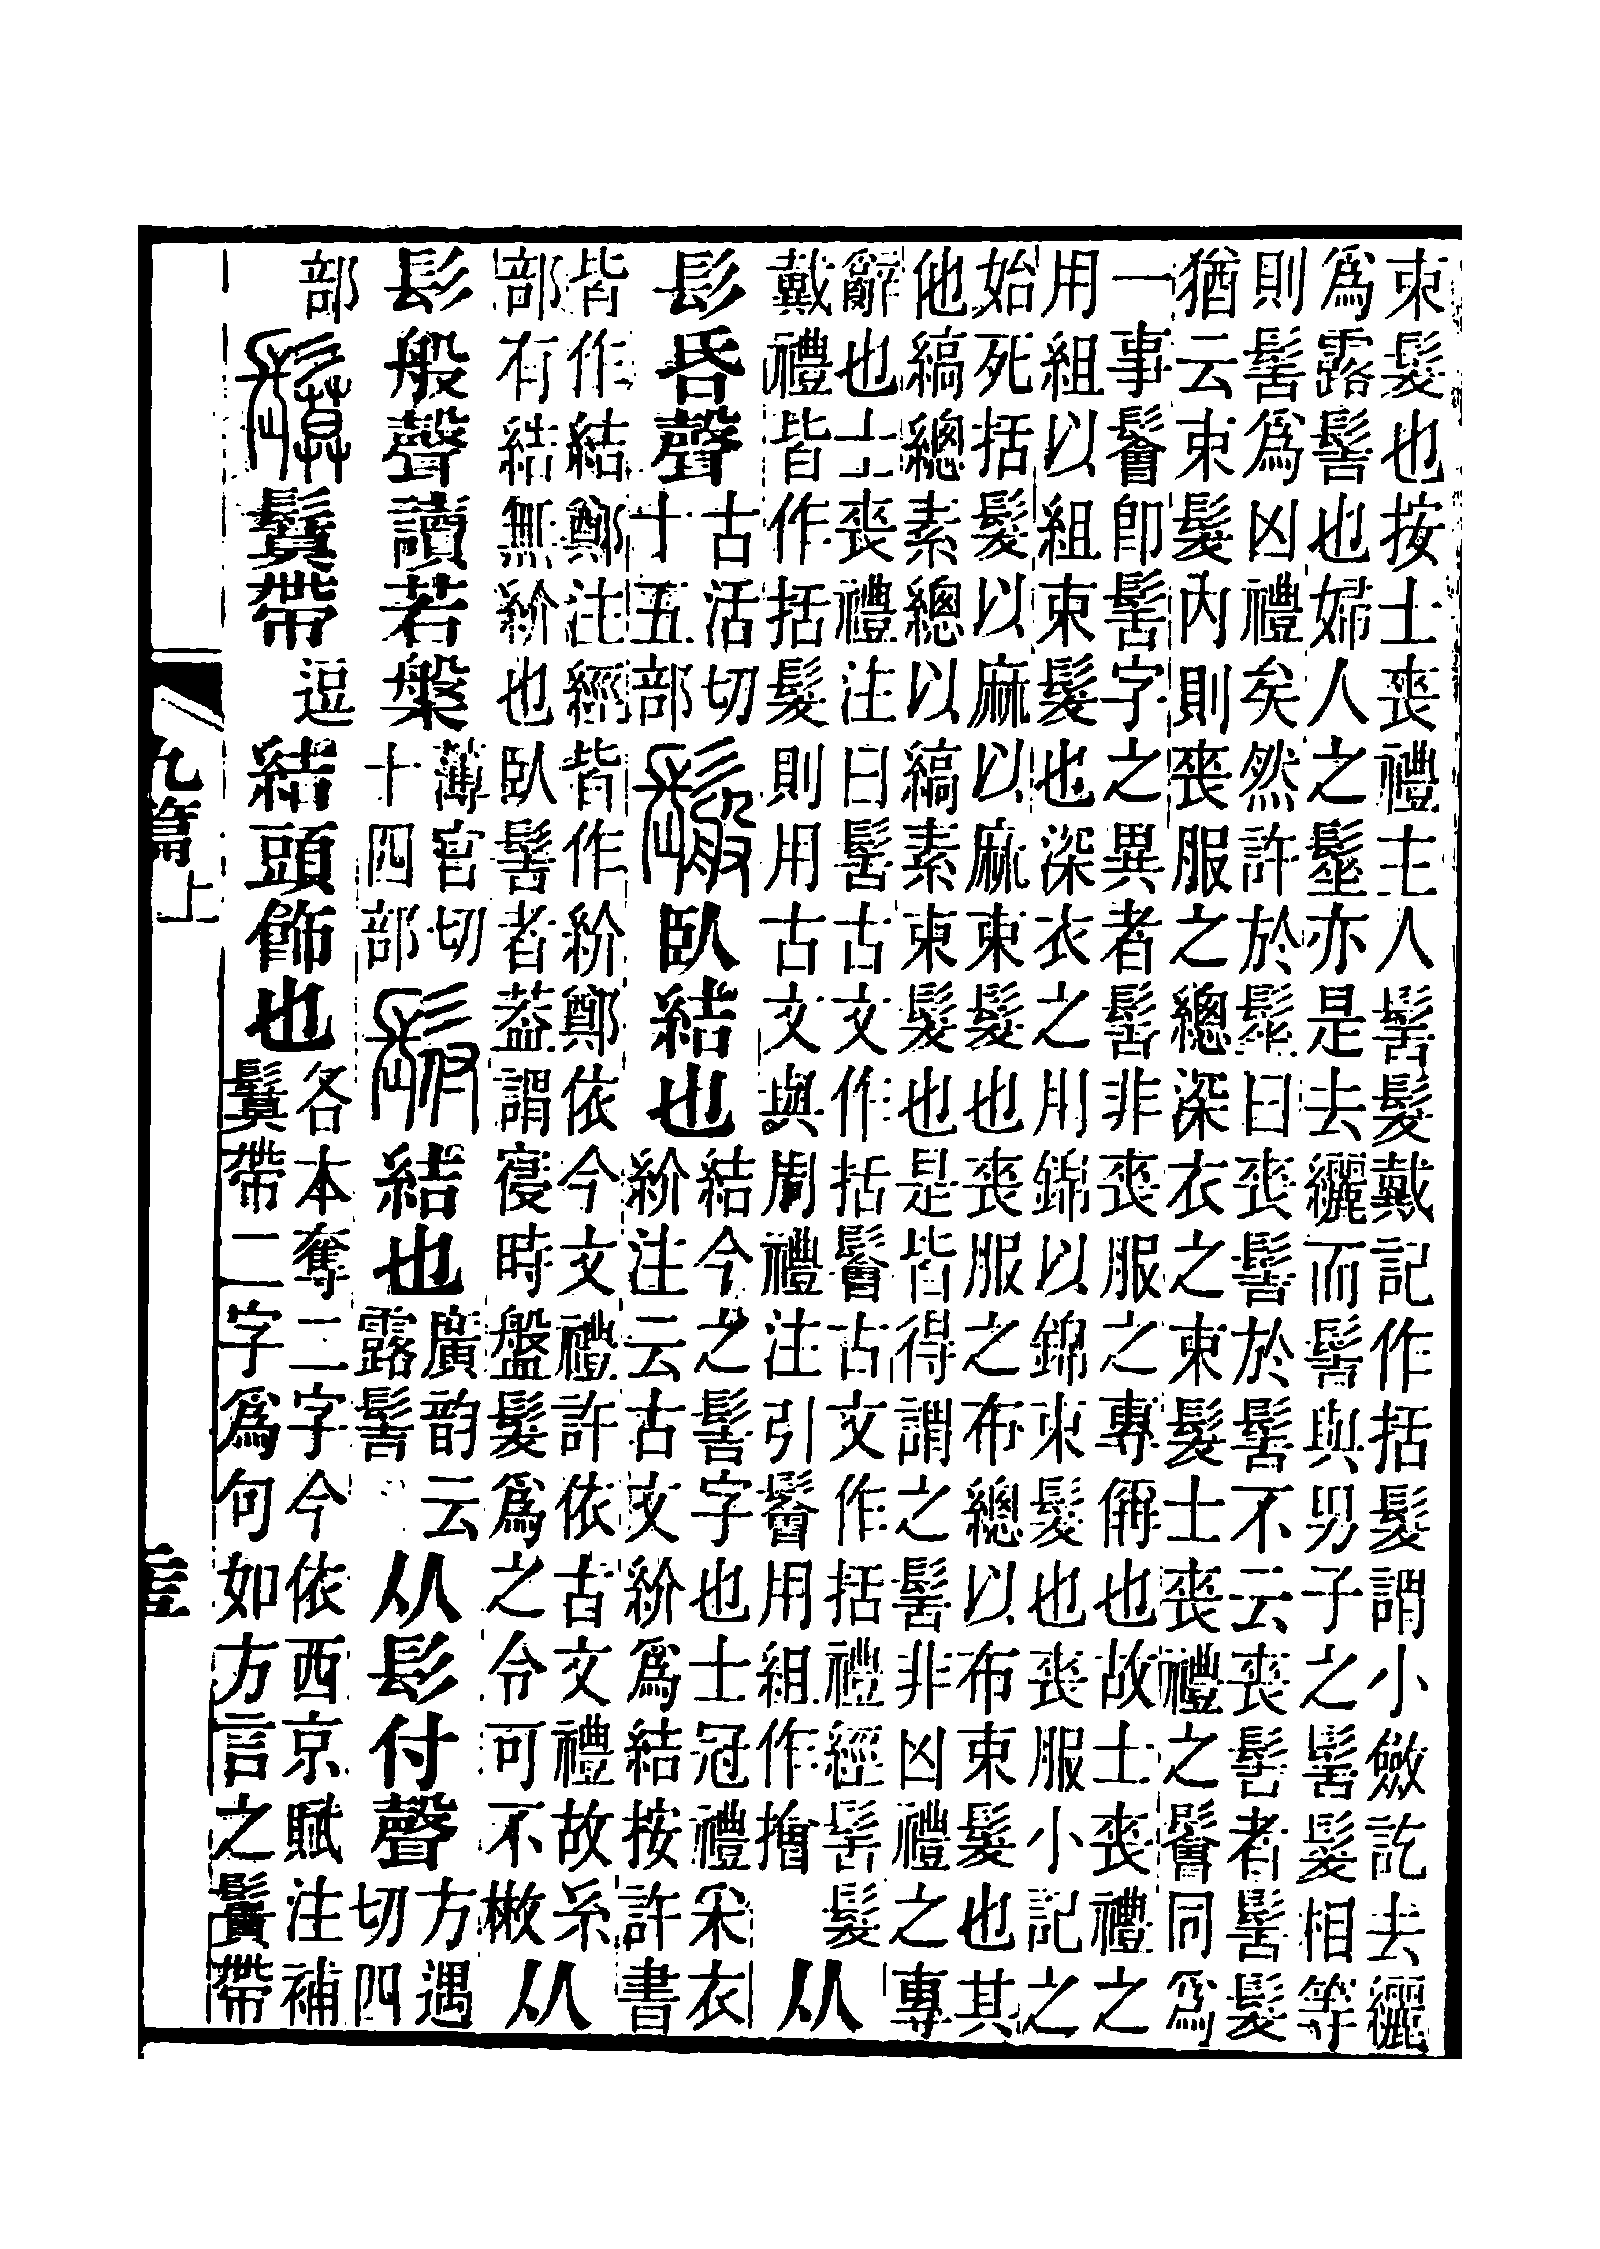 束髮也按士喪禮主人髺髮戴記作括髮謂小斂訖去纚
爲露髻也婦人之髽亦是去纚而髻與男子之髺髮相等
則髺爲凶禮矣然許於髽曰喪髻於髺不云喪髺者髺髮
猶云束髮內則喪服之總深衣之束髮士喪禮之鬠同爲
一事鬠卽髺字之異者髺非喪服之專偁也故士喪禮之
用組以組束髮也深衣之用錦以錦束髮也喪服小記之
始死括髮以麻以麻束髮也喪服之布總以布束髮也其
他縞總素總以縞素束髮也是皆得謂之髺非凶禮之專
辭也士喪禮注曰髺古文作括鬠古文作括禮經髺髮
戴禮皆作括髮則用古文與周禮注引鬠用組作㩓
从
髟昏聲
古活切
十五部
鬆臥結也
結今之髻字也士冠禮采衣
紒注云古文紒爲結按許書
皆作結鄭注經皆作紒鄭依今文禮許依古文禮故糸
部有結無紒也臥髻者葢謂寑時盤髮爲之令可不
从
髟般聲讀若槃
薄官切
十四部
髟付結也
廣韵云
露髻
从髟付聲
方遇
切四
部
鬕鬕帶
逗
結頭飾也
各本奪二字今依西京賦注補
鬕帶二字爲句如方言之鬕帶
九篇上